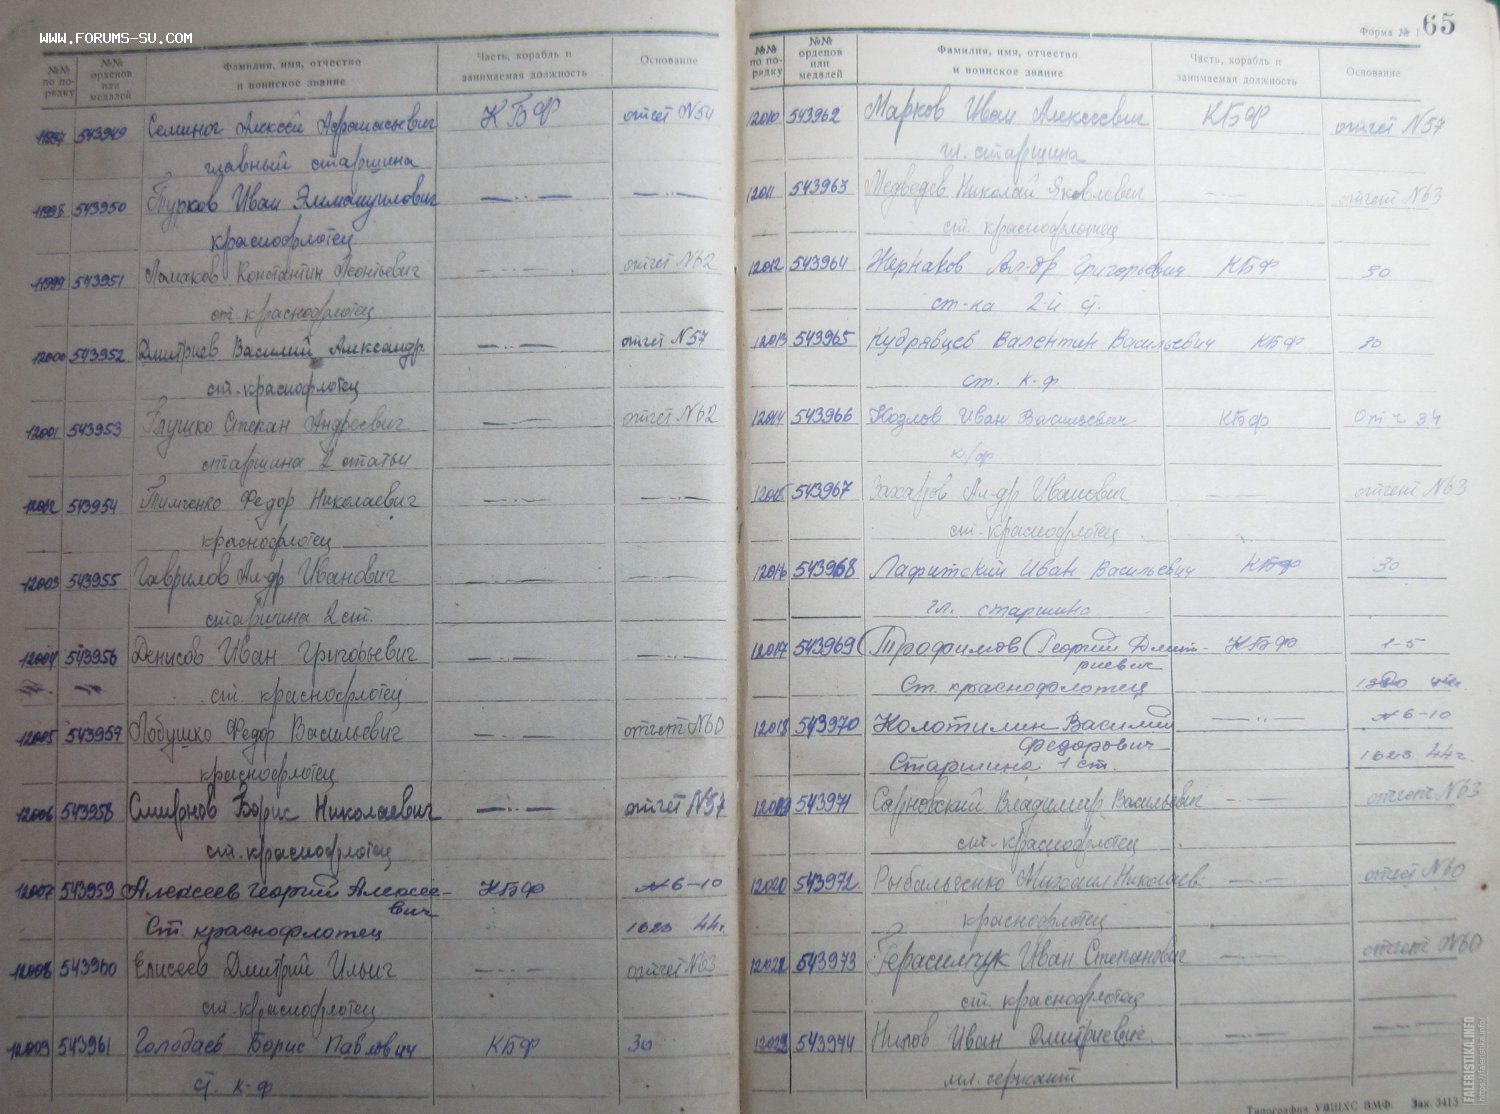 WWW.FORUMS-SU.COM
№№ по порядку №№ орденов или медалей Фамилия, имя, отчество и воинское звание Часть, корабль и занимаемая должность Основание
11997 543949 Семиног Алексей Афанасьевич КБФ отчет N54
главный старшина
11998 543950 Турков Иван Эммануилович —··— —··—
краснофлотец
11999 543951 Ломаков Константин Леонтьевич —··— отчет N62
ст. краснофлотец
12000 543952 Дмитриев Василий Александр. —··— отчет N57
ст. краснофлотец
12001 543953 Глушко Степан Андреевич —··— отчет N62
старшина 2 статьи
12002 543954 Тимченко Федор Николаевич —··— —··—
краснофлотец
12003 543955 Гаврилов Ал-др Иванович —··— —··—
старшина 2 ст.
12004 543956 Денисов Иван Григорьевич —··— —··—
ст. краснофлотец
12005 543957 Лобушко Федор Васильевич —··— отчет N60
краснофлотец
12006 543958 Смирнов Борис Николаевич —··— отчет N57
ст. краснофлотец
12007 543959 Алексеев Георгий Алексее- КБФ N 6-10
вич
Ст. краснофлотец 1623 44г.
12008 543960 Елисеев Дмитрий Ильич —··— отчет N63
ст. краснофлотец
12009 543961 Голодаев Борис Павлович КБФ 30
ст. к-ф
Форма № 1 65
№№ по порядку №№ орденов или медалей Фамилия, имя, отчество и воинское звание Часть, корабль и занимаемая должность Основание
12010 543962 Марков Иван Алексеевич КБФ отчет N57
гл. старшина
12011 543963 Медведев Николай Яковлевич —··— отчет N63
ст. краснофлотец
12012 543964 Жернаков Ал-др Григорьевич КБФ 30
ст-на 2-й ст.
12013 543965 Кудрявцев Валентин Васильевич КБФ 30
ст. к-ф
12014 543966 Козлов Иван Васильевич КБФ Отч 34
к/ф
12015 543967 Захаров Ал-др Иванович —··— отчет N63
ст. краснофлотец
12016 543968 Лафитский Иван Васильевич КБФ 30
гл. старшина
12017 543969 Трофимов (Георгий Дмит- КБФ 1-5
риевич
Ст. краснофлотец
12018 543970 Колотилин Василий —··— N 6-10
Федорович
Старшина 1 ст. 1623 44г.
12019 543971 Сарновский Владимир Васильевич —··— отчет N63
ст. краснофлотец
12020 543972 Рыбальченко Михаил Николаев. —··— отчет N60
краснофлотец
12021 543973 Герасимчук Иван Степанович —··— отчет N60
ст. краснофлотец
12022 543974 Нилов Иван Дмитриевич —··— —··—
мл. сержант
Типография УВШХС ВМФ. Зак. 3413
FALERISTIKA.INFO
https://faleristika.info/